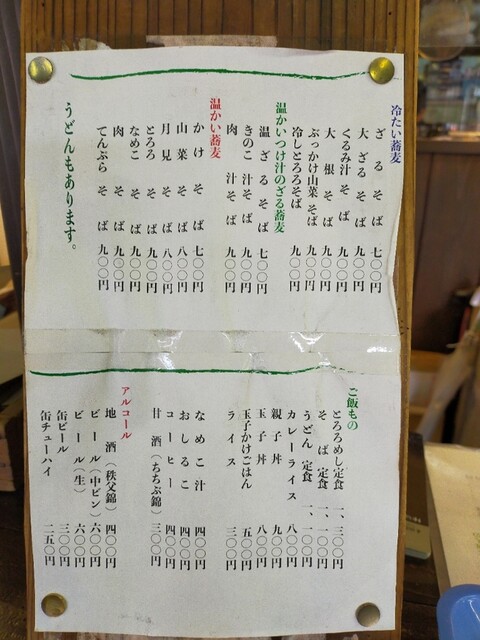 冷たい蕎麦
ざるそば 七〇〇円
大ざるそば 九〇〇円
くるみ汁そば 九〇〇円
大根そば 九〇〇円
ぶっかけ山菜そば 九〇〇円
冷しとろろそば 九〇〇円
温かいつけ汁のざる蕎麦
温ざるそば 七〇〇円
きのこ汁そば 九〇〇円
肉汁そば 九〇〇円
温かい蕎麦
かけそば 七〇〇円
山菜そば 八〇〇円
月見そば 八〇〇円
とろろそば 九〇〇円
なめこそば 九〇〇円
肉そば 九〇〇円
てんぷらそば 九〇〇円
うどんもあります。
ご飯もの
とろろめし定食 一、三〇〇円
そば定食 一、一〇〇円
うどん定食 一、一〇〇円
カレーライス 八〇〇円
親子丼 九〇〇円
玉子丼 八〇〇円
玉子かけごはん 五〇〇円
ライス 三〇〇円
なめこ汁 四〇〇円
おしるこ 四〇〇円
コーヒー 四〇〇円
甘酒(ちちぶ錦) 三〇〇円
アルコール
地酒(秩父錦) 四〇〇円
ビール(中ビン) 六〇〇円
ビール(生) 六〇〇円
缶ビール 三〇〇円
缶チューハイ 二五〇円